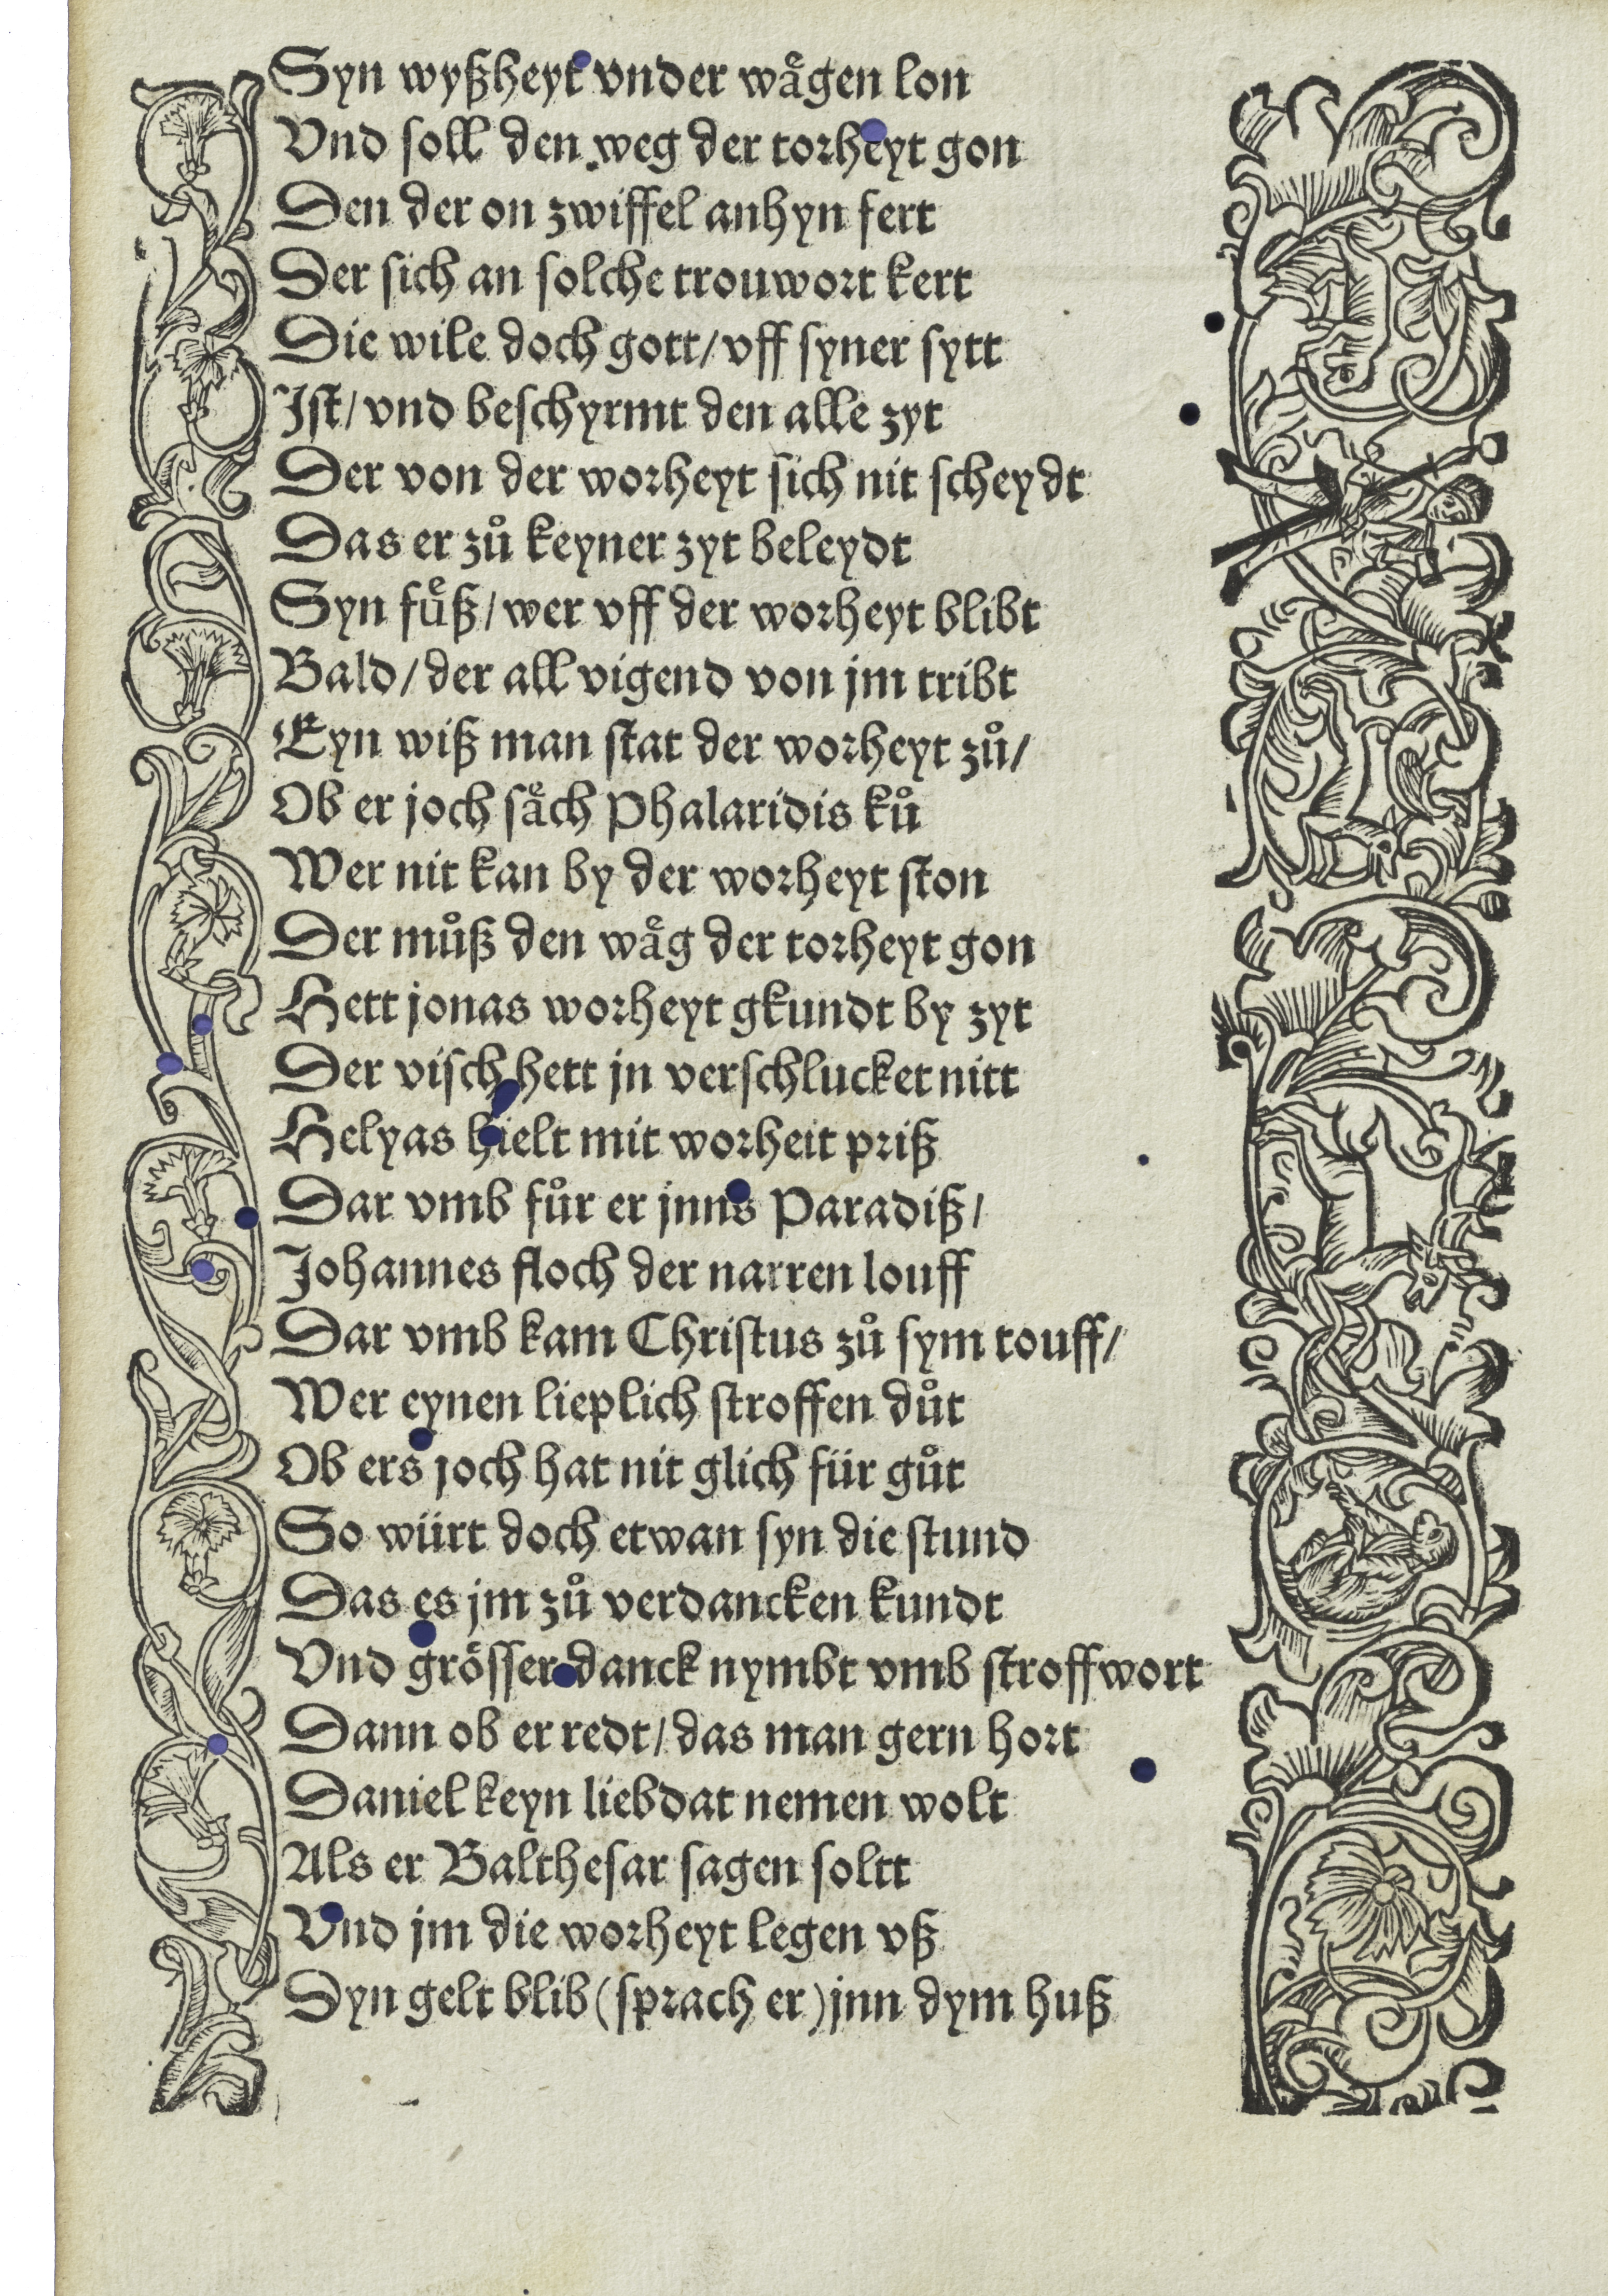 Syn wyßheyt vnder waͤgen lon
Vnd soll den weg der torheyt gon
Den der on zwiffel anhyn fert
Der sich an solche trouwort kert
Die wile doch gott/ vff syner sytt
Jst/ vnd beschyrmt den alle zyt
Der von der worheyt sich nit scheydt
Das er zuͦ keyner zyt beleydt
Syn fuͤß/ wer vff der worheyt blibt
Bald/ der all vigend von jm tribt
Eyn wiß man stat der worheyt zuͦ/
Ob er joch saͤch Phalaridis kuͦ
Wer nit kan by der worheyt ston
Der muͦß den waͤg der torheyt gon
Hett jonas worheyt gkundt by zyt
Der visch hett jn verschlucket nitt
Helyas hielt mit worheit priß
Dar vmb fuͦr er jnns Paradiß/
Johannes floch der narren louff
Dar vmb kam Christus zuͦ sym touff/
Wer eynen lieplich stroffen duͦt
Ob ers joch hat nit glich für guͦt
So würt doch etwan syn die stund
Das es jm zuͦ verdancken kundt
Vnd groͤsser danck nymbt vmb stroffwort
Dann ob er redt/ das man gern hort
Daniel keyn liebdat nemen wolt
Als er Balthesar sagen soltt
Vnd jm die worheyt legen vß
Dyn gelt blib (sprach er) jnn dym huß